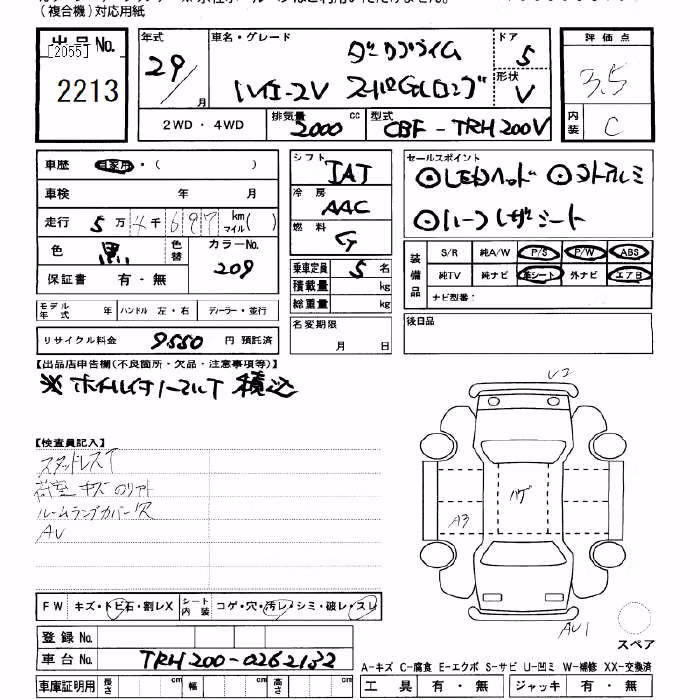 (複合機)対応用紙
出品No.
[2055]
2213
年式 29/ 月
車名・グレード
ダークプライム
ハイエースV スーパーGLロング
ドア 5
形状 V
評価点 3.5
内装 C
2WD・4WD
排気量 2000 cc
型式 CBF-TRH200V
車歴 自家用・( )
車検 年 月
走行 5万4千697 km マイル( )
色 黒 色替
カラーNo. 209
保証書 有・無
シフト IAT
冷房 AAC
燃料 G
乗車定員 5 名
積載量 kg
総重量 kg
セールスポイント
◎LEDヘッド ◎ストアルミ
◎ハーフレザーシート
装備品
S/R 純A/W P/S P/W ABS
純TV 純ナビ 革シート 外ナビ エアB
ナビ型番:
モデル年式 年 ハンドル 左・右 ディーラー・並行
名変期限 月 日
後日品
リサイクル料金 9550 円 預託済
【出品店申告欄(不良箇所・欠品・注意事項等)】
※ホイール付ノーマルT 積込
【検査員記入】
スタッドレスT
荷室 キズ
ルームランプカバー穴
AU
U2
ハゲ
A3
AU1
スペア
FW キズ・トビ石・割レX シート内装 コゲ・穴・汚レ・シミ・破レ・スレ
登録No.
車台No. TRH200-0262132
A-キズ C-腐食 E-エクボ S-サビ U-凹ミ W-補修 XX-交換済
車庫証明用 長さ cm 幅 cm 高さ cm
工具 有・無 ジャッキ 有・無